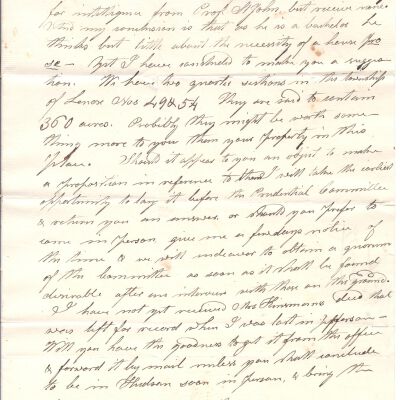 for intelligence from Prof. but receive none
this my conclusion is that as he is a bachelor he
thinks but little about the necessity of a house pro
se - Yet I have concluded to make you a sugges
tion. We have two quarter sections in the township
of Lenox Nos 49 & 54 They are said to contain
360 acres. Probably they might be worth some-
thing more to you than your property in this
place. Should it appear to you an object to make
a proposition in reference to them I will take the earliest
opportunity to lay it before the Prudential Committee
& return you an answer, or should you prefer to
come in person give me a few days notice of
the time & we will endeavor to obtain a quorum
of the Committee as soon as it shall be found
desirable after an interview with them on this ground.
I have not yet received Mrs deed that
was left for record when I was last in Jefferson -
Will you have the goodness to get it from the office
& forward it by mail unless you shall conclude
to be in Hudson soon in person, & bring it